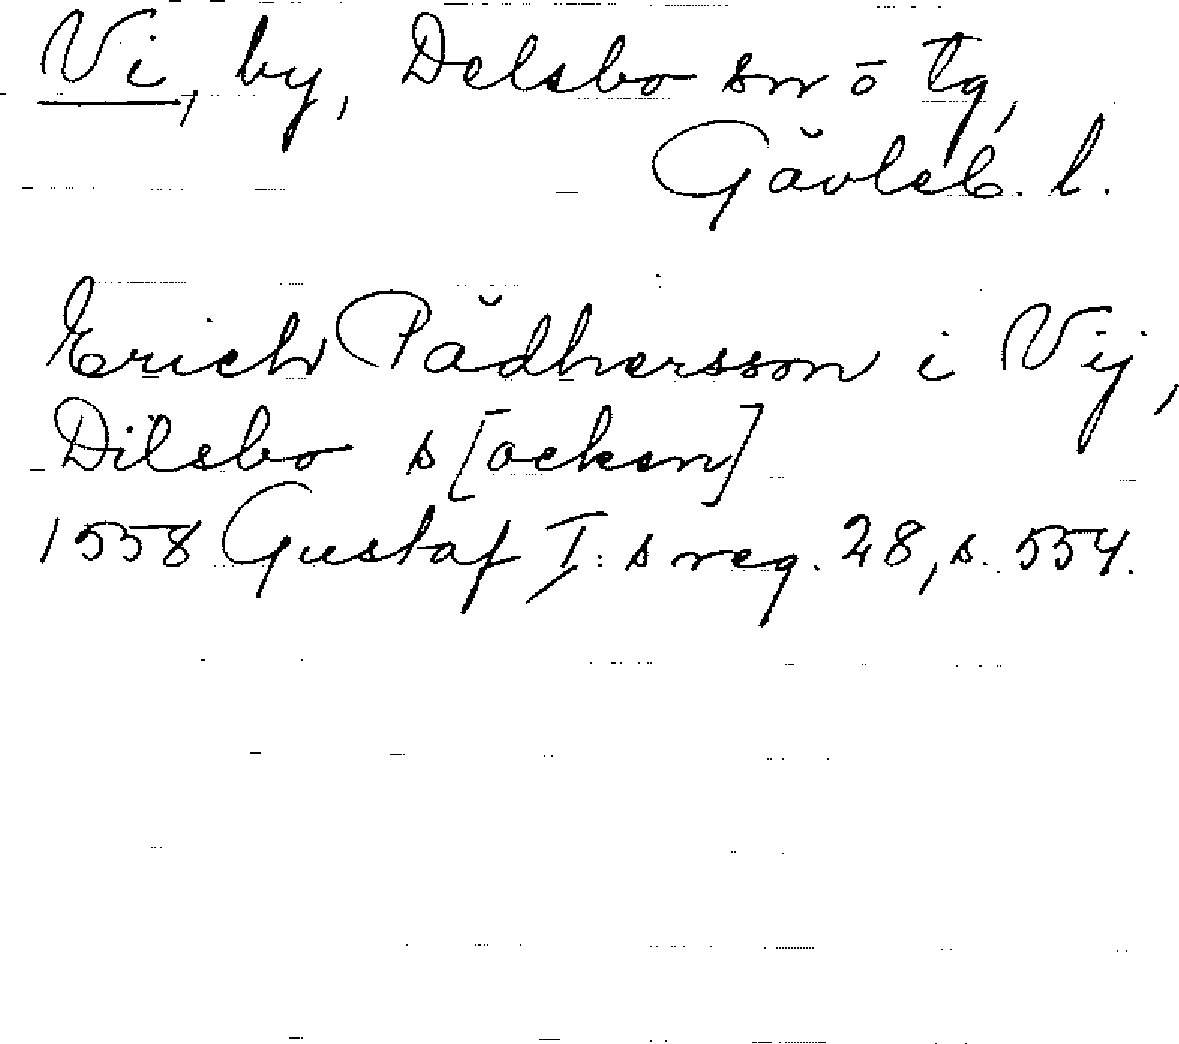 Vi, by, Delsbo sn o tg,
Gävleb. l.
Erich Pädhersson i Vij,
Dilsbo s[ocken]
1558 Gustaf I:s reg. 28, s. 554.